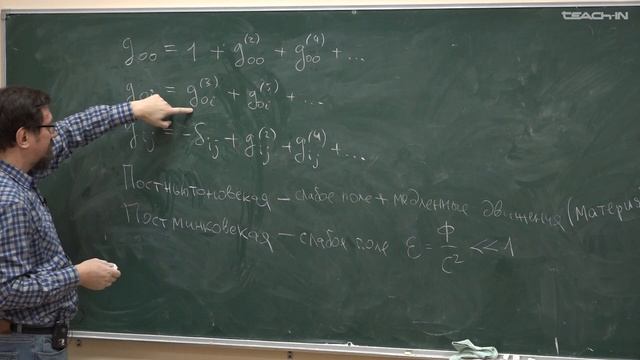 TEACH-IN
g₀₀ = 1 + g₀₀⁽²⁾ + g₀₀⁽⁴⁾ + ...
g₀ᵢ = g₀ᵢ⁽³⁾ + g₀ᵢ⁽⁵⁾ + ...
gᵢⱼ = -δᵢⱼ + gᵢⱼ⁽²⁾ + gᵢⱼ⁽⁴⁾ + ...
Постньютоновская – слабое поле + медленные движения (материя
Постминковская – слабое поле ε = Φ/c² ≪ 1